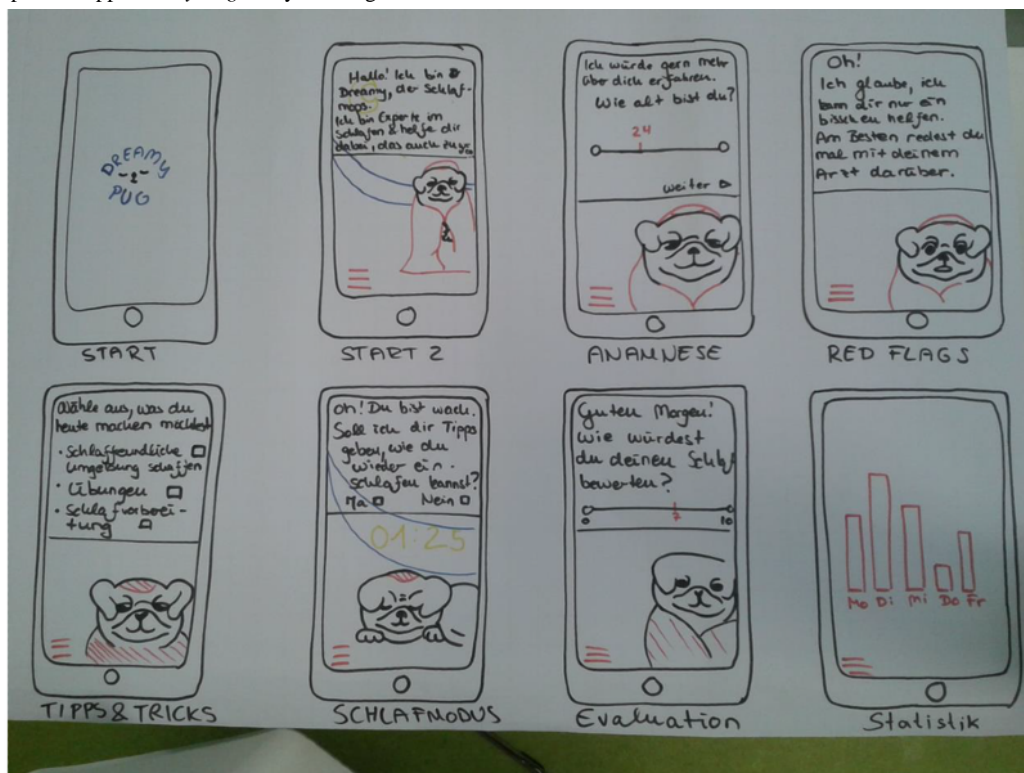 DREAMY
PUG
START
Hallo! Ich bin
Dreamy, der Schlaf-
mops.
Ich bin Experte im
Schlafen & helfe dir
dabei, das auch zu
START 2
Ich würde gern mehr
über dich erfahren.
Wie alt bist du?
24
weiter
ANAMNESE
Oh!
Ich glaube, ich
kann dir nur ein
bisschen helfen.
Am Besten redest du
mal mit deinem
Arzt darüber.
RED FLAGS
Wähle aus, was du
heute machen möchtest
• Schlaffreundliche
Umgebung schaffen
• Übungen
• Schlafvorberei-
tung
TIPPS & TRICKS
Oh! Du bist wach.
Soll ich dir Tipps
geben, wie du
wieder ein-
schlafen kannst?
Nein
01:25
SCHLAFMODUS
Guten Morgen!
Wie würdest
du deinen Schlaf
bewerten?
0 7 10
Evaluation
Mo Di Mi Do Fr
Statistik